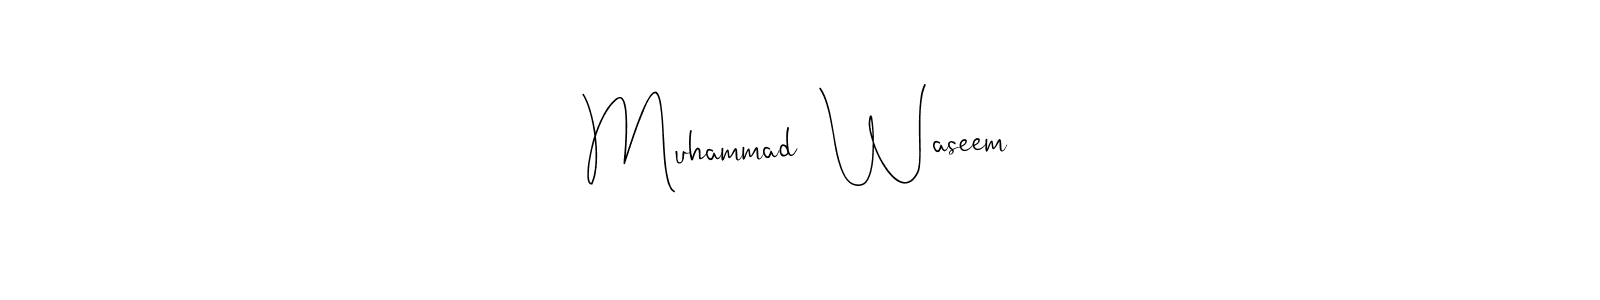 Muhammad Waseem